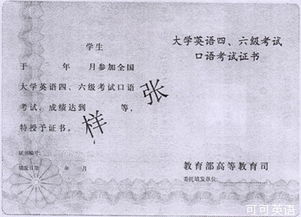 学生
于 年 月参加全国
大学英语四、六级考试口语
考试，成绩达到 等，
特授予证书。
证书编号：
填发日期 年 月
样张
大学英语四、六级考试
口语考试证书
教育部高等教育司
委托填发单位
可可英语